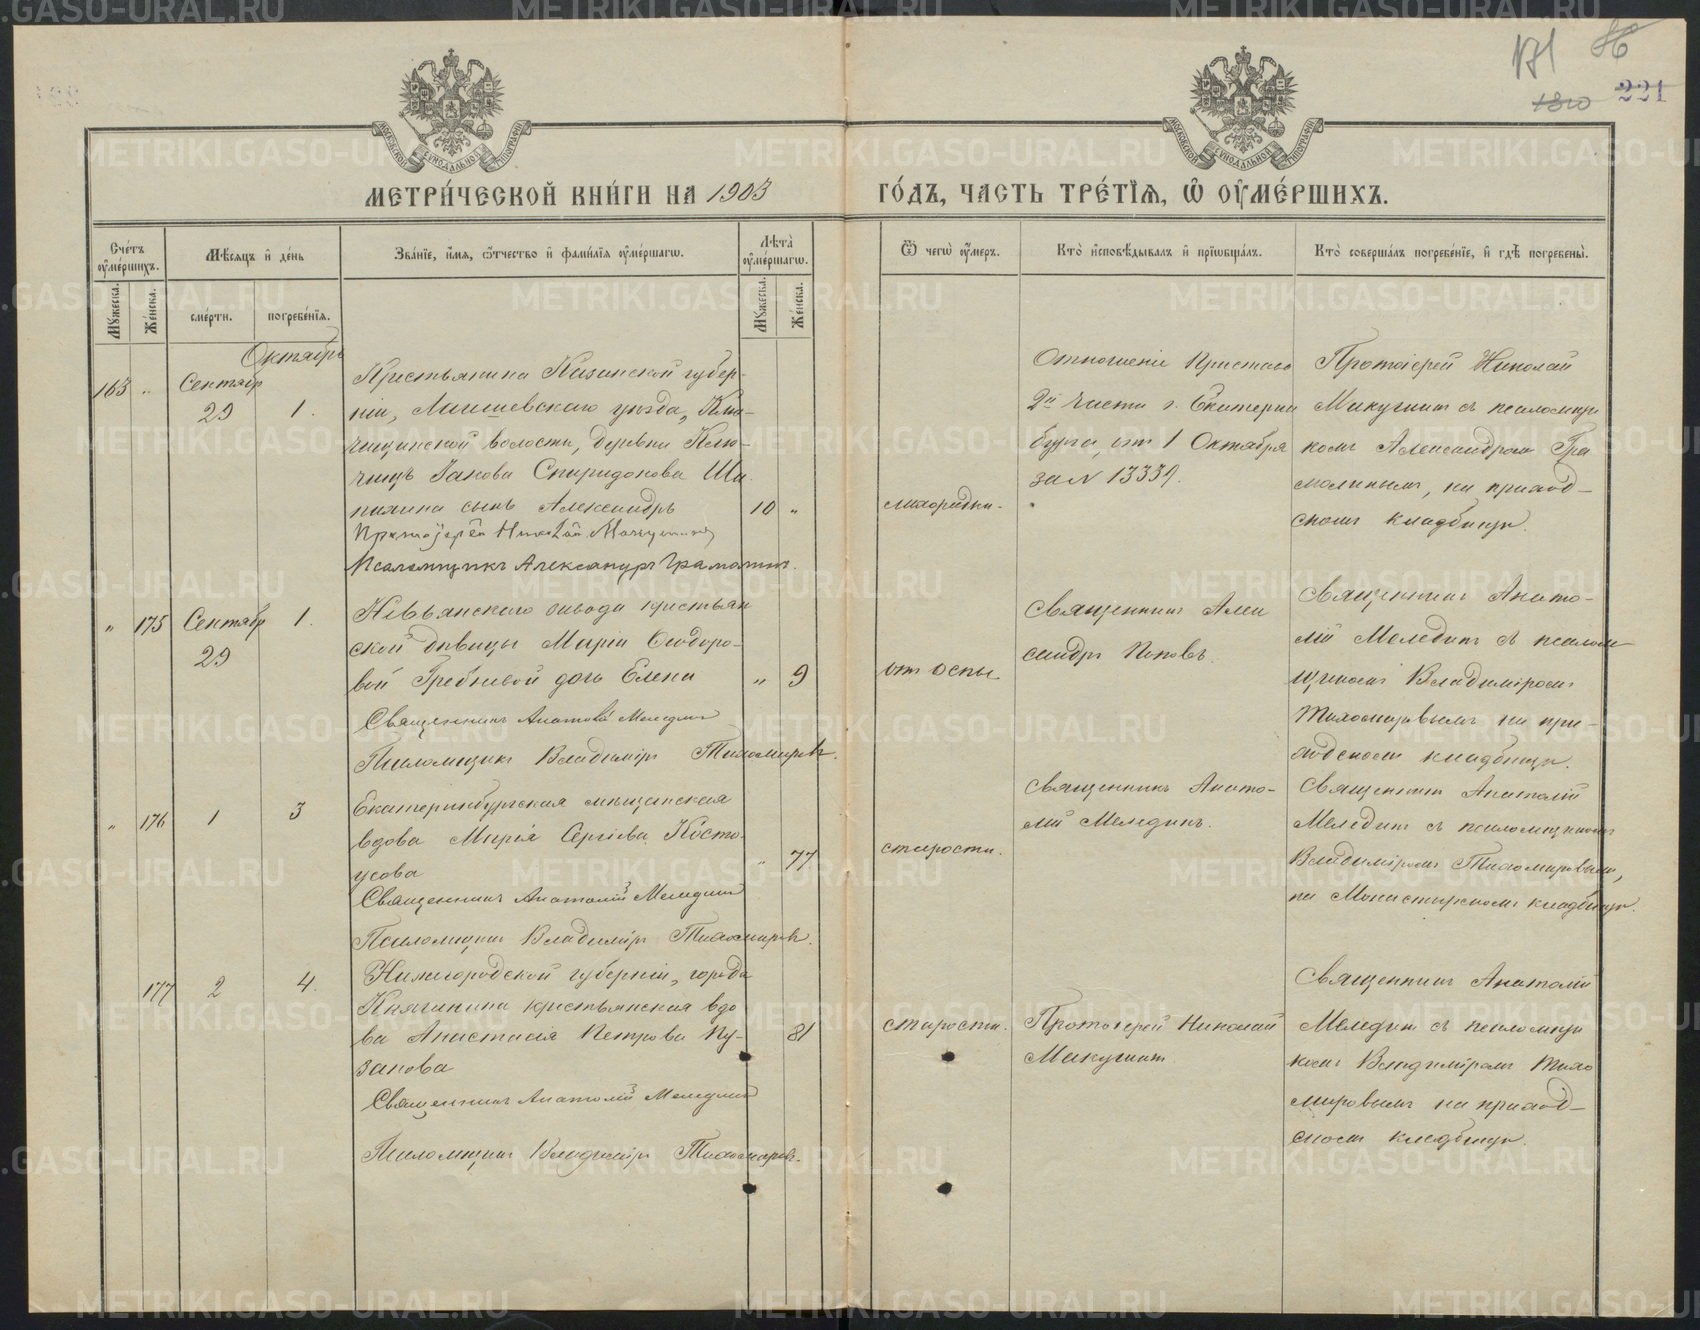 171 86
1810 221
МОСКОВСКОЙ СѴНОДАЛЬНОЙ ТИПОГРАФІИ
МОСКОВСКОЙ СѴНОДАЛЬНОЙ ТИПОГРАФІИ
МЕТРИ́ЧЕСКОЙ КНИ́ГИ НА 1903 ГО́ДЪ, ЧАСТЬ ТРЕ́ТЇѦ, Ѡ҆ ОУ҆МЕ́РШИХЪ.
Сче́тъ оу҆ме́ршихъ.
Мѣ́сѧцъ и҆ де́нь
Зва́нїе, и҆́мѧ, ѻ҆́тчество и҆ фами́лїѧ оу҆ме́ршагѡ.
Лѣта̀ оу҆ме́ршагѡ.
Ѿ чегѡ̀ оу҆́меръ.
Кто̀ и҆сповѣ́дывалъ и҆ прїѡбща́лъ.
Кто̀ соверша́лъ погребе́нїе, и҆ гдѣ̀ погребены̀.
Мꙋ́жеска. Же́нска. сме́рти. погребе́нїѧ. Мꙋ́жеска. Же́нска.
Октябрь
163 " Сентябр 29 1.
Крестьянина Казанской губер-
ніи, Лаишевскаго уѣзда, Клю-
чищинской волости, деревни Клю-
чищъ Іакова Спиридонова Ша
пкина сынъ Александръ 10 "
Протоіерей Николай Микушинъ
Псаломщикъ Александръ Грамолинъ.
скоротечн.
Отношеніе Пристава
2й части г. Екатерин
бурга, отъ 1 Октября
за N 13339.
Протоіерей Николай
Микушинъ съ псаломщи
комъ Александромъ Гра
молинымъ, на приход-
скомъ кладбищѣ.
" 175 Сентябр 29 1.
Невьянскаго завода крестьян
ской дѣвицы Маріи Ѳеодоро-
вой Гребневой дочь Елена " 9
Священникъ Анатолій Меледин
Псаломщикъ Владиміръ Тихомировъ.
отъ оспы
Священникъ Алек
сандръ Поповъ.
Священникъ Анато-
лій Меледин съ псалом
щикомъ Владиміромъ
Тихомировымъ на при-
ходскомъ кладбищѣ.
" 176 1 3
Екатеринбургская мѣщанская
вдова Марія Сергіева Косто-
усова " 77
Священникъ Анатолій Меледин
Псаломщикъ Владиміръ Тихомировъ.
старости.
Священникъ Анато-
лій Мелединъ.
Священникъ Анатолій
Меледин съ псаломщикомъ
Владиміромъ Тихомировымъ,
на Монастырскомъ кладбищѣ.
177 2 4.
Нижегородской губерніи, города
Княгинина крестьянская вдо
ва Анастасія Петрова Пу-
занова 81
Священникъ Анатолій Меледин
Псаломщикъ Владиміръ Тихомировъ.
старости.
Протоіерей Николай
Микушинъ.
Священникъ Анатолій
Меледин съ псаломщи
комъ Владиміромъ Тихо
мировымъ на приход-
скомъ кладбищѣ.
METRIKI.GASO-URAL.RU